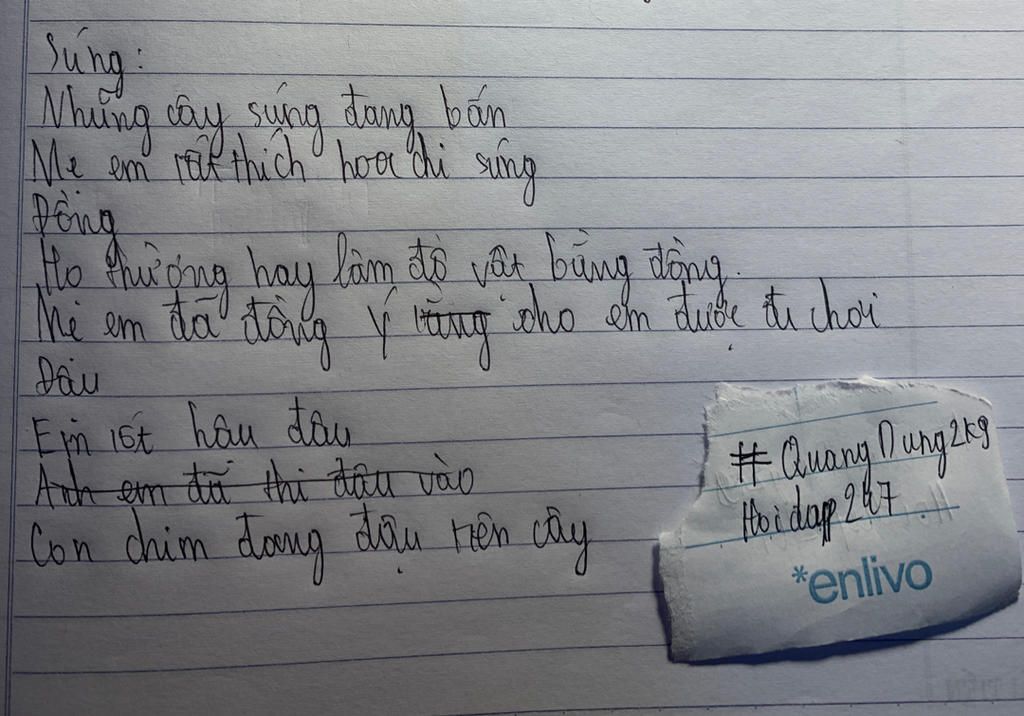 Súng:
Những cây súng đang bắn
Mẹ em rất thích hoa chi súng
Đồng
Họ thường hay làm đồ vật bằng đồng.
Mẹ em đã đồng ý rằng cho em được đi chơi
Đậu
Em rót hâu đâu
Anh em đã thi đậu vào
Con chim đang đậu trên cây
#QuangDung2k9
Hoidap247
*enlivo